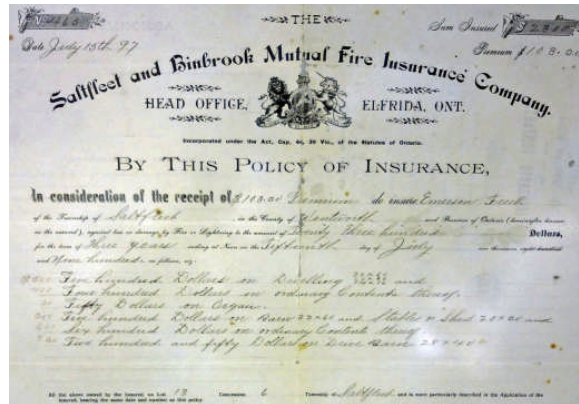 THE
Date July 15th 97
Sum Insured $2300
Premium $103.00
Saltfleet and Binbrook Mutual Fire Insurance Company.
HEAD OFFICE, ELFRIDA, ONT.
Incorporated under the Act, Cap. 44, 39 Vic., of the Statutes of Ontario.
BY THIS POLICY OF INSURANCE,
In consideration of the receipt of $103.00 Premium do insure Emerson
of the Township of Saltfleet in the County of Wentworth and Province of Ontario (hereinafter known
as the assured), against loss or damage by Fire or Lightning to the amount of Twenty three hundred Dollars,
for the term of Three years ending at Noon on the Fifteenth day of July one thousand eight hundred
and Nine hundred as follows, viz:
Five hundred Dollars on Dwelling and
Four hundred Dollars on ordinary Contents thereof.
Fifty Dollars on Organ.
Five hundred Dollars on Barn and Stable & Shed and
Six hundred Dollars on ordinary Contents
Two hundred and fifty Dollars on Drive Barn
All the above owned by the Insured, on Lot 13 Concession 6 Township of Saltfleet and is more particularly described in the Application of the
Insured, bearing the same date and number as this policy